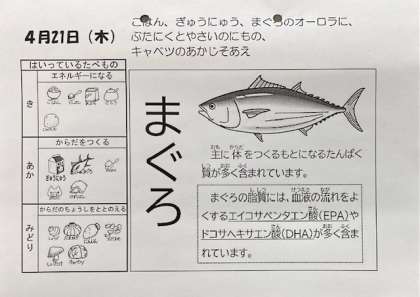 4月21日（木）
ごはん、ぎゅうにゅう、まぐろのオーロラに、
ぶたにくとやさいのにもの、
キャベツのあかじそあえ
はいっているたべもの
エネルギーになる
き
からだをつくる
あか
ぎゅうにゅう
からだのちょうしをととのえる
みどり
まぐろ
主に体をつくるもとになるたんぱく
質が多く含まれています。
まぐろの脂質には、血液の流れをよ
くするエイコサペンタエン酸(EPA)や
ドコサヘキサエン酸(DHA)が多く含ま
れています。